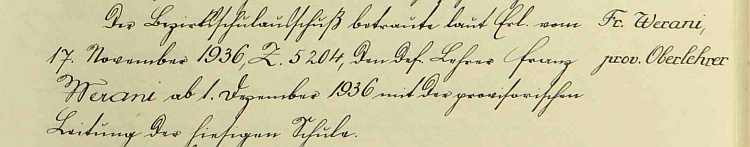 Der Bezirksschulausschuß betraute laut Erl. vom
17. November 1936, Z. 5204, den def. Lehrer Franz
Werani ab 1. Dezember 1936 mit der provisorischen
Leitung der hiesigen Schule.
Fr. Werani,
prov. Oberlehrer